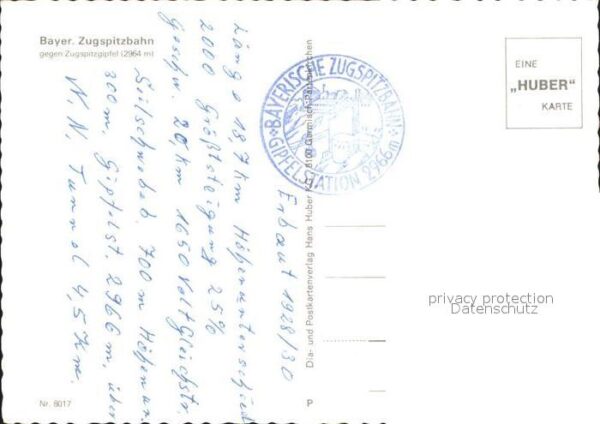 Bayer. Zugspitzbahn
gegen Zugspitzgipfel (2964 m)
Erbaut 1928/30
Länge 18,7 km Höhenunterschied
2000 Größtsteigung 25%
Geschw. 20 km 1650 Volt Gleichstr.
Seilschwebeb. 700 m Höhenun.
300 m Gipfelst. 2966 m, über
N.N. Tunnel 4,5 km.
BAYERISCHE ZUGSPITZBAHN
GIPFELSTATION 2966m
Dia- und Postkartenverlag Hans Huber KG, 8100 Garmisch-Partenkirchen
EINE
„HUBER"
KARTE
privacy protection
Datenschutz
Nr. 8017
P